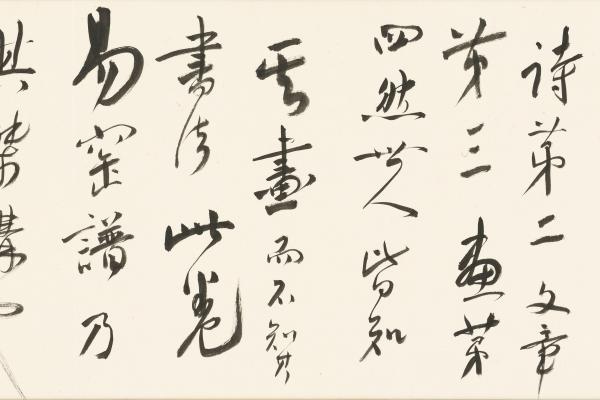 詩第二文章
第三畫第
四然世人皆知
其畫而不知其
書法此卷
易窯譜乃
其